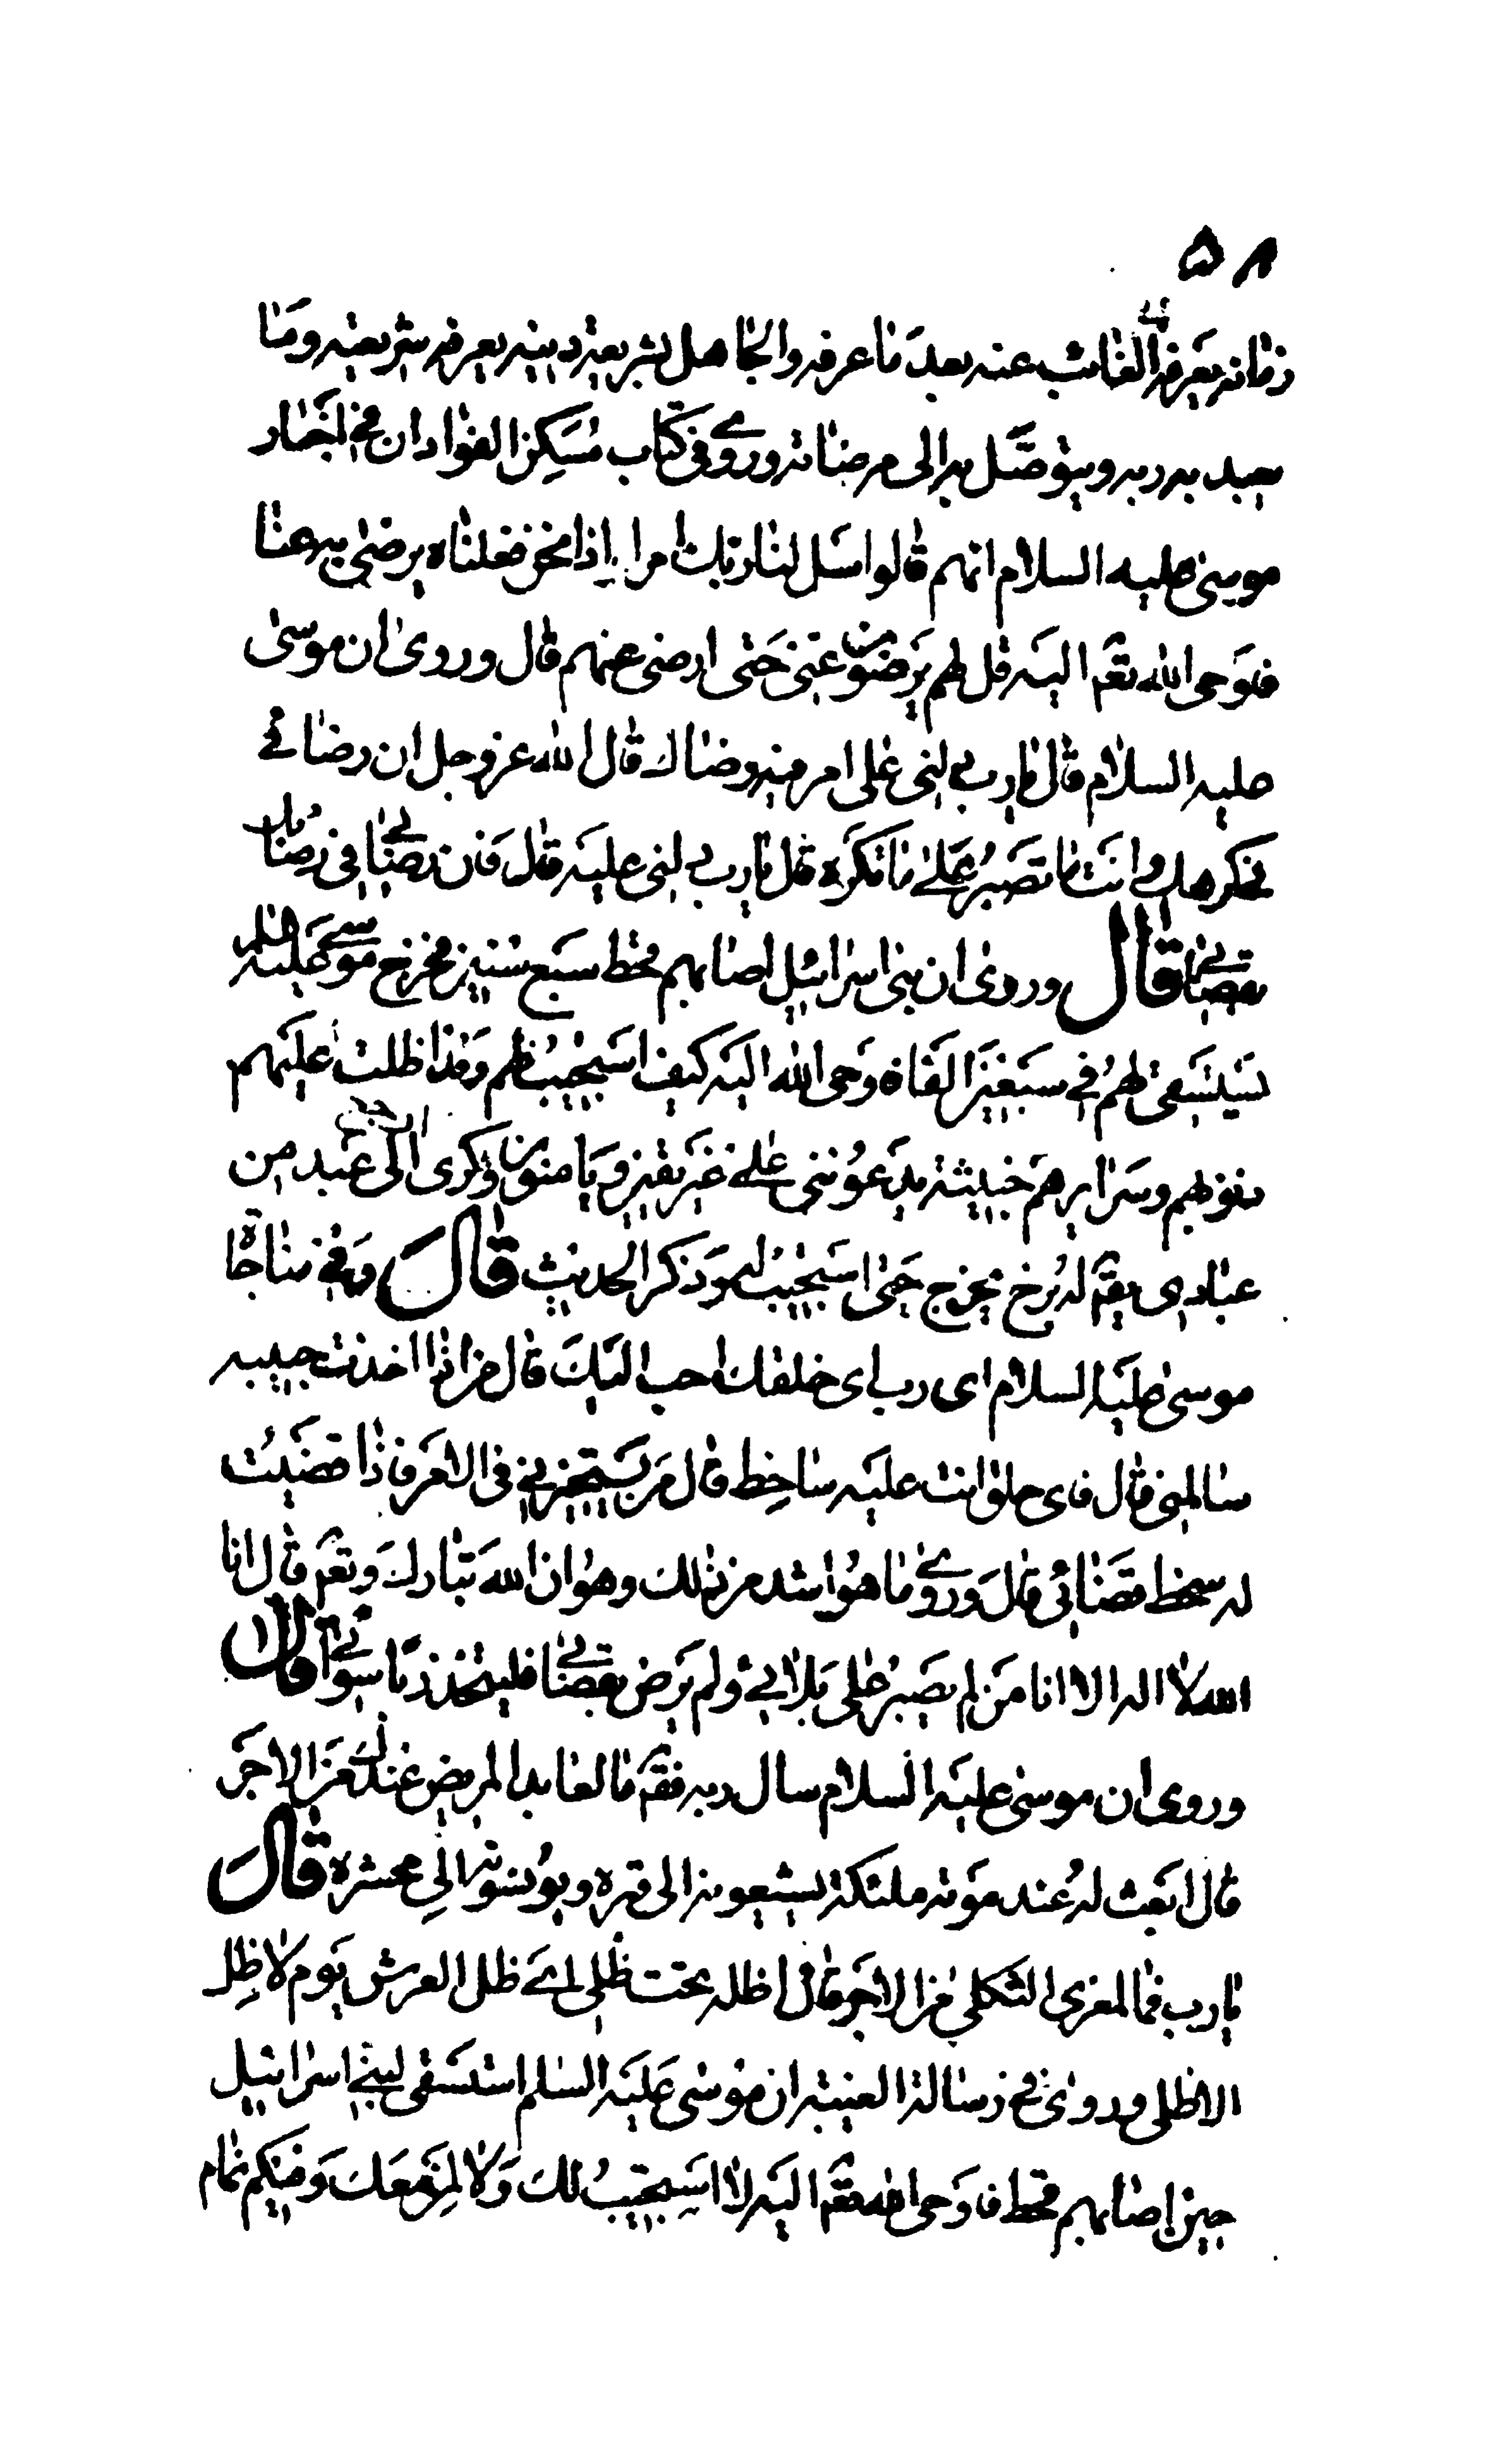 ٥٨
زمانه يعرفه الغائب عنه بعد ما عرفه والجاهل بشريعة دينه يعرفه شريعته وما
يعبد به ربه ويتوصّل به الى مرضاته وروى فى كتاب مسكن الفؤاد ان فى اخبار
موسى عليه السلام انهم قالوا اسئل لنا ربك امرا اذا نحن فعلناه يرضى به عنا
فاوحى الله تعم اليه قل لهم يرضون عنى حتى ارضى عنهم قال وروى ان موسى
عليه السلام قال يا رب دلنى على امر فيه رضاك قال الله عز وجل ان رضائى
فى كرهك وانت ما تصبر على ما تكره قال يا رب دلنى عليه قال فان رضائى فى رضاك
بقضائى قال وروى ان بنى اسرائيل اصابهم قحط سبع سنين فخرج موسى عليه السلم
يستسقى لهم فى سبعين الفا فاوحى الله اليه كيف استجيب لهم وقد اظلت عليهم
ذنوبهم وسرايرهم خبيثة يدعوننى على غير يقين ويامنون مكرى ارجع الى عبد من
عبادى يقم له برخ يخرج حتى استجيب له وذكر الحديث قال وفى مناجاة
موسى عليه السلام اى رب اى خلقك احب اليك قال من اذا اخذت حبيبه
سالمنى قال فاى خلق انت عليه ساخط قال من يستخيرنى فى الامر فاذا قضيت
له سخط قضائى قال وروى ما هو اشد من ذلك وهو ان الله تبارك وتعم قال انا
الله لا اله الا انا من لم يصبر على بلائى ولم يرض بقضائى فليتخذ ربا سوائى قال
وروى ان موسى عليه السلام سال ربه فقم ما لعايد المريض عندك من الاجر
قال ابعث له عند موته ملئكة يشيعونه الى قبره ويونسونه الى محشره قال
يا رب فما لمعزى الثكلى من الاجر قال اظله تحت ظلى اى ظل العرش يوم لا ظل
الا ظلى وروى فى رسالة الغيبة ان موسى عليه السلم استسقى لبنى اسرائيل
حين اصابهم قحط فاوحى الله تعم اليه لا استجيب لك ولا لمن معك وفيكم نمام